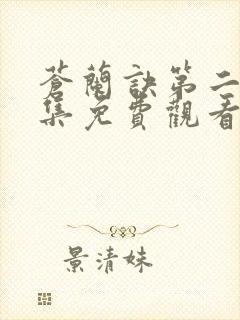 蒼蘭訣第二
集免費觀看
景清妹